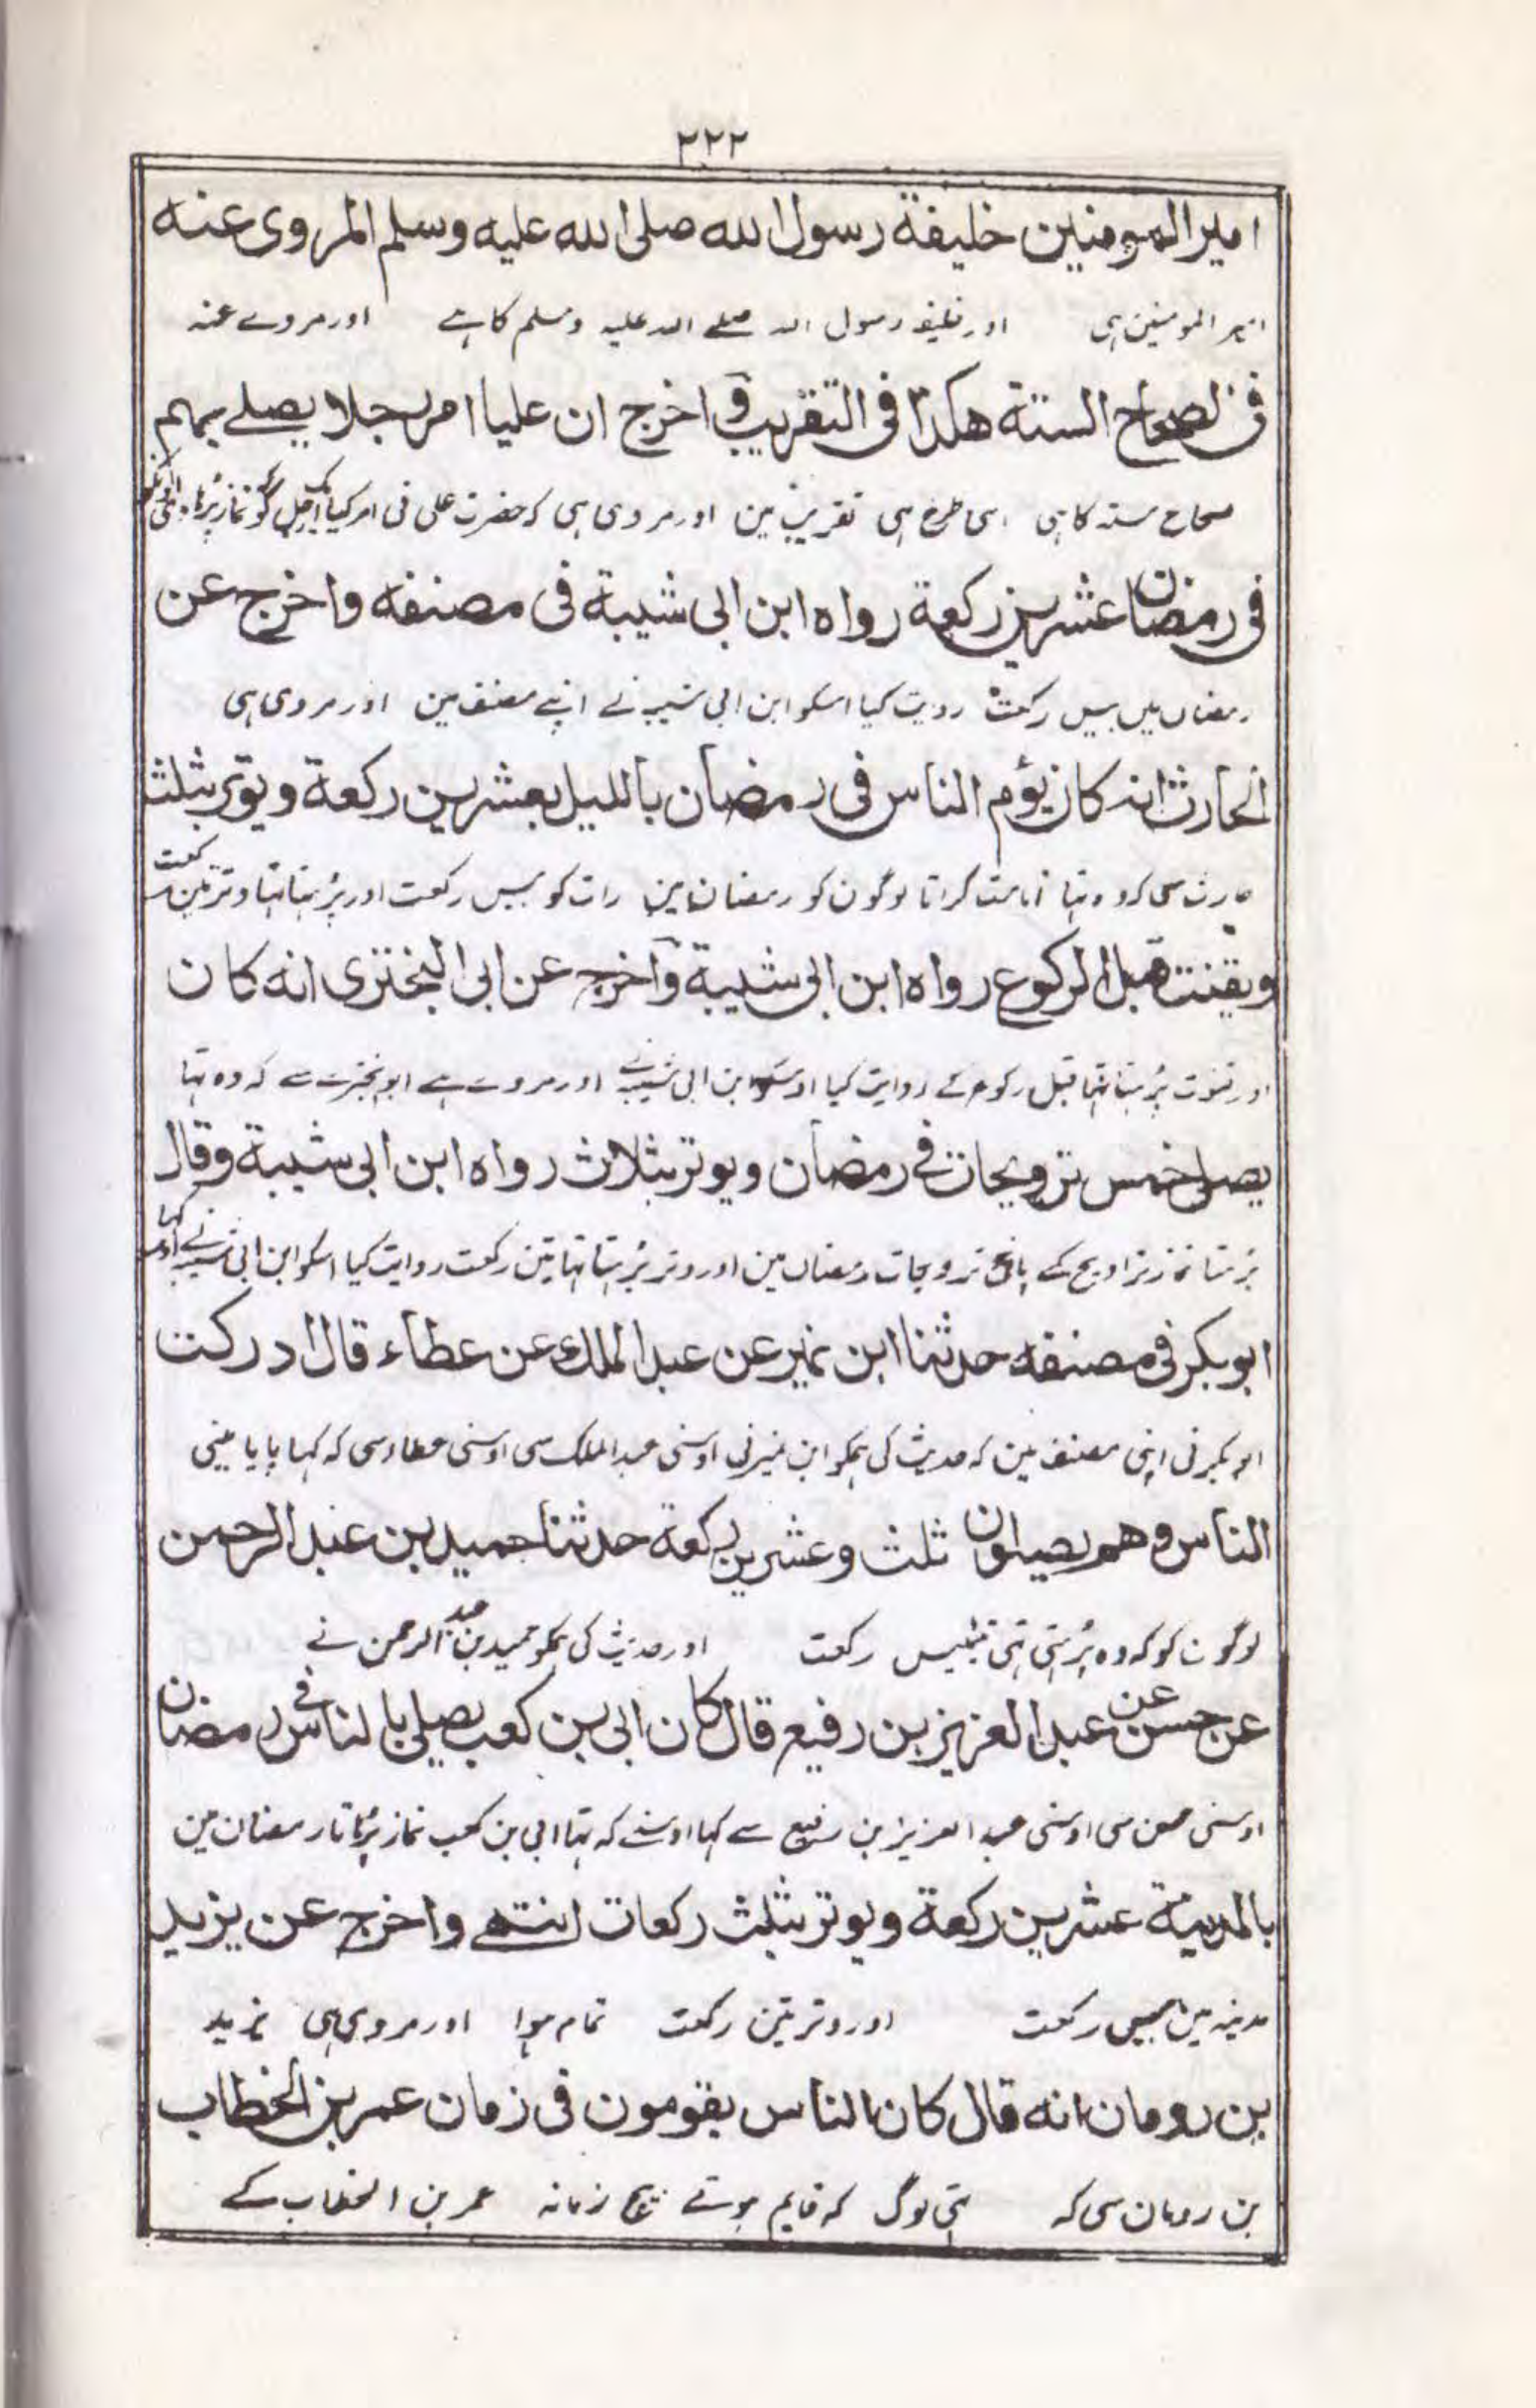 ٢٢٢
امير المومنين خليفة رسول الله صلى الله عليه وسلم المروى عنه
امیر المومنین ہی اور خلیفہ رسول اللہ صلے اللہ علیہ وسلم کا ہے اور مروے عنہ
فى الصحاح الستة هكذا فى التقريب و اخرج ان عليا امر رجلا يصلے بهم
صحاح ستہ کا ہی اسی طرح ہی تقریب مین اور مروی ہی کہ حضرت علی نی امر کیا ایک رجل کو کہ نماز پڑہا دی
فى رمضان عشرين ركعة رواه ابن ابى شيبة فى مصنفه واخرج عن
رمضان میں بیس رکعت رویت کیا اسکو ابن ابی شیبہ نے اپنے مصنف مین اور مروی ہی
الحارث انه كان يؤم الناس فى رمضان بالليل بعشرين ركعة ويوتر بثلث
حارث سی کہ وہ تہا امامت کراتا لوگون کو رمضان مین رات کو بیس رکعت اور پڑہتا تہا وتر تین رکعت
ويقنت قبل الركوع رواه ابن ابى شيبة واخرج عن ابى البخترى انه كان
اور قنوت پڑہتا تہا قبل رکوع کے روایت کیا اوسکو ابن ابی شیبہ نے اور مروے ہے ابو بخترے سے کہ وہ تہا
يصلى خمس ترويحات فے رمضان ويوتر بثلاث رواه ابن ابى شيبة وقال
پڑہتا نماز تراویح کے پانچ ترویحات رمضان مین اور وتر پڑہتا تہا تین رکعت روایت کیا اسکو ابن ابی شیبہ نے اور کہا
ابوبكر فى مصنفه حدثنا ابن نمير عن عبد الملك عن عطاء قال ادركت
ابو بکر نی اپنی مصنف مین کہ حدیث کی ہمکو ابن نمیر نی اوسنی عبد الملک سی اوسنی عطاء سی کہ کہا پایا مینی
الناس وهم يصلون ثلث وعشرين ركعة حدثنا حميد بن عبد الرحمن
لوگون کو کہ وہ پڑہتی تہی تیئیس رکعت اور حدیث کی ہمکو حمید بن عبد الرحمن نے
عن حسن عن عبد العزيز بن رفيع قال كان ابى بن كعب يصلى بالناس فے رمضان
اوسنی حسن سی اوسنی عبد العزیز بن رفیع سے کہا اوسنے کہ تہا ابی بن کعب نماز پڑہاتا رمضان مین
بالمدينة عشرين ركعة ويوتر بثلث ركعات انتهے واخرج عن يزيد
مدینہ مین بیس رکعت اور وتر تین رکعت تمام ہوا اور مروی ہی یزید
بن رومان انه قال كان الناس يقومون فى زمان عمر بن الخطاب
بن رومان سی کہ تہی لوگ کہ قایم ہوتے بیچ زمانہ عمر بن الخطاب کے